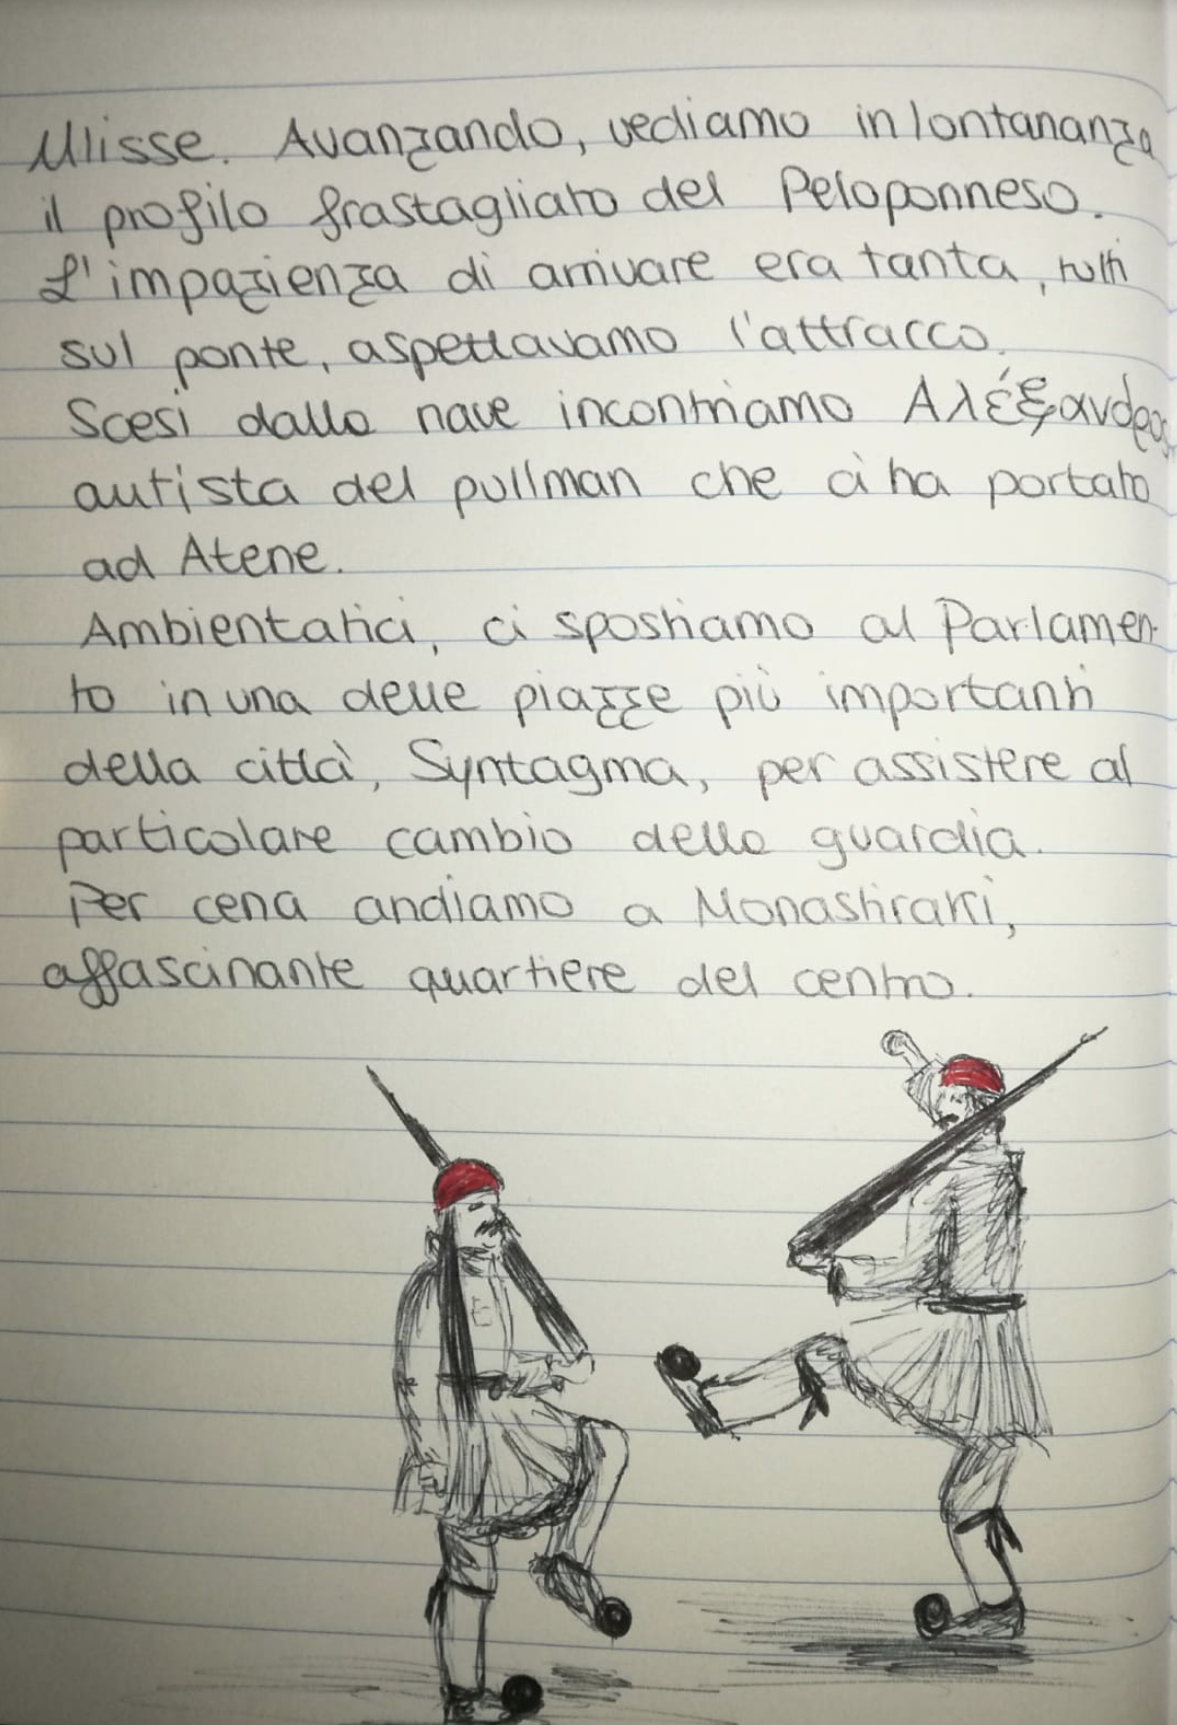 Ulisse. Avanzando, vediamo in lontananza
il profilo frastagliato del Peloponneso.
L'impazienza di arrivare era tanta, tutti
sul ponte, aspettavamo l'attracco.
Scesi dalla nave incontriamo Αλέξανδρος,
autista del pullman che ci ha portato
ad Atene.
Ambientatici, ci spostiamo al Parlamen-
to in una delle piazze più importanti
della città, Syntagma, per assistere al
particolare cambio della guardia.
Per cena andiamo a Monastiraki,
affascinante quartiere del centro.